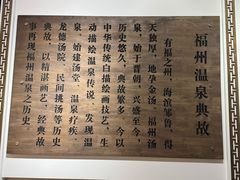 福州温泉典故
有福之州，海滨邹鲁，得
天独厚，地孕金汤。福州汤
泉，始于晋朝，兴盛至今，
历史悠久，典故繁多。今以
中华传统白描绘画技艺，生
动描绘温泉传说、发现温
泉、始建汤堂、温泉疗疾、
龙德汤院、民间挑汤等历史
典故，以精湛画艺，经典故
事再现福州温泉之历史。